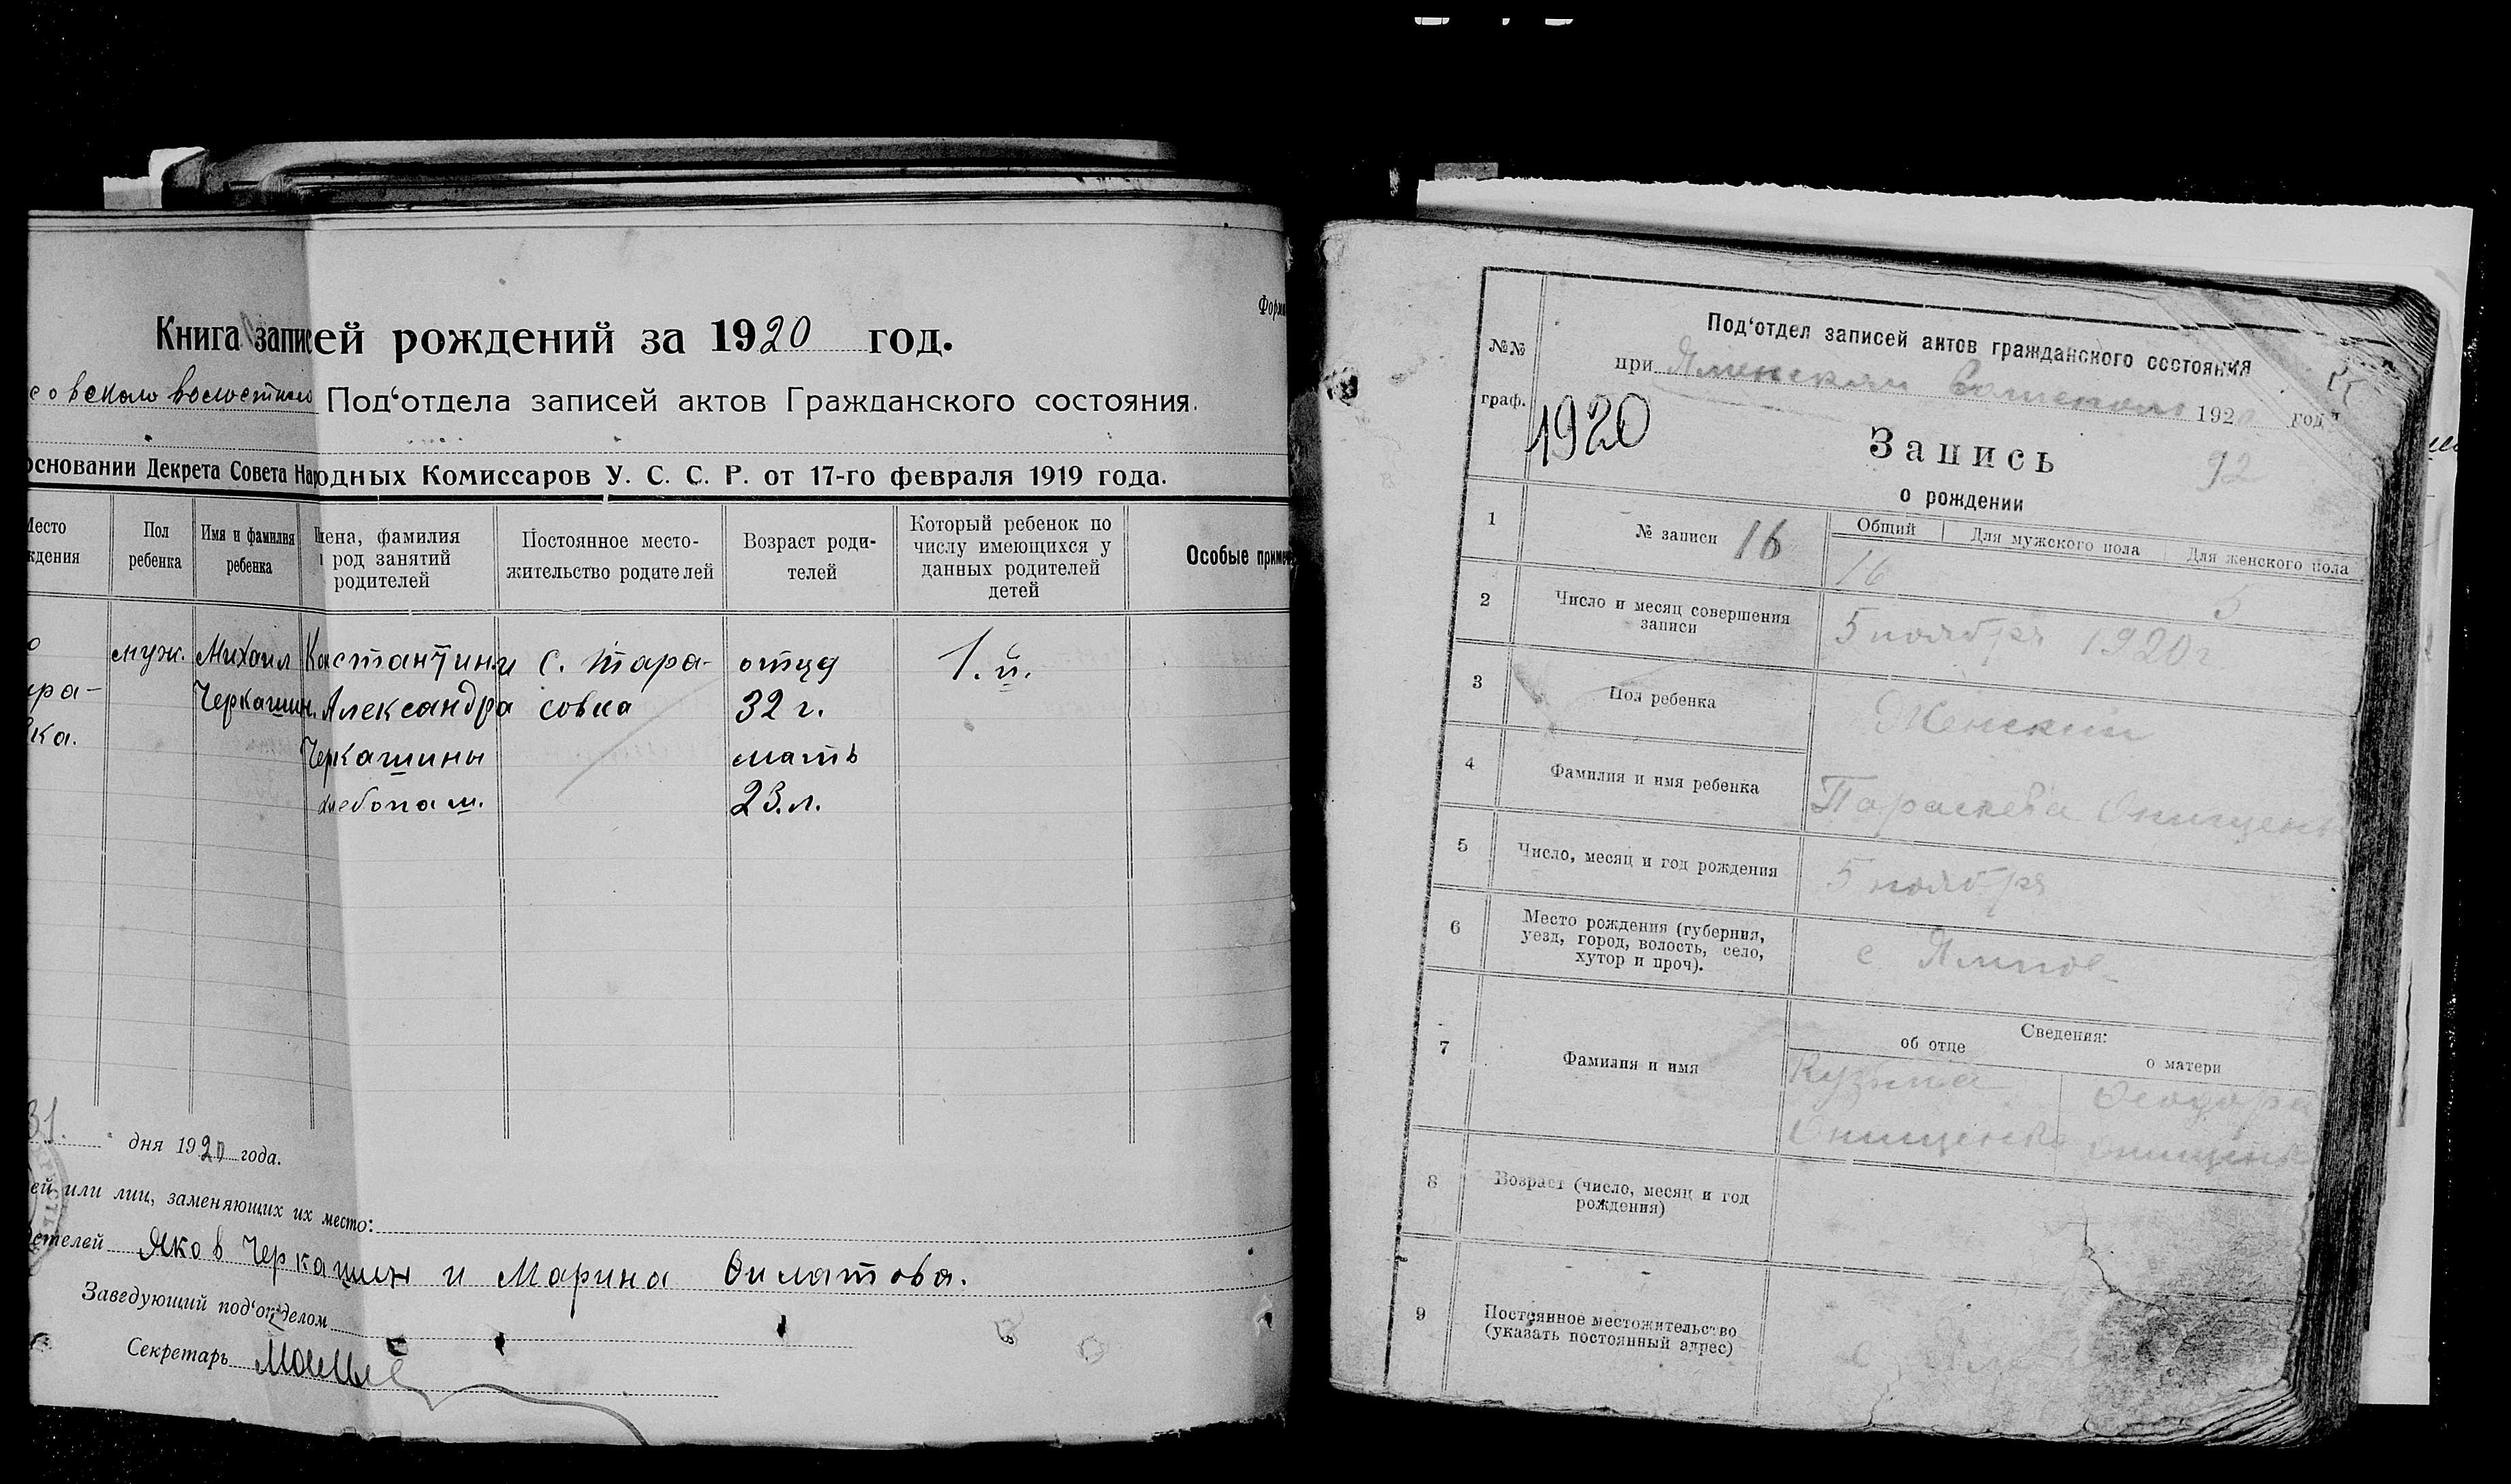 Форма
Книга записей рождений за 1920 год.
совского волостного Под'отдела записей актов Гражданского состояния.
основании Декрета Совета Народных Комиссаров У. С. С. Р. от 17-го февраля 1919 года.
Место ждения
Пол ребенка
Имя и фамилия ребенка
мена, фамилия и род занятий родителей
Постоянное место-жительство родителей
Возраст роди-телей
Который ребенок по числу имеющихся у данных родителей детей
Особые примеч
муж. Михаил Костантин и с. Тара- отца 1.й.
ра- Черкашин. Александра совка 32 г.
ка. Черкашины мать
хлебопаш. 23.л.
31. дня 1920 года.
ей или лиц, заменяющих их место:
етелей Яков Черкашин и Марина Филатова.
Заведующий под'отделом
Секретарь
№№ граф.
Под'отдел записей актов гражданского состояния
при 1920 год
1920
Запись
92
о рождении
1 № записи 16
Общий Для мужского пола Для женского пола
16 5
2 Число и месяц совершения записи
5 ноября 1920 г
3 Пол ребенка
Женский
4 Фамилия и имя ребенка
Параскева Онищенк
5 Число, месяц и год рождения
5 ноября
6 Место рождения (губерния, уезд, город, волость, село, хутор и проч).
с Ямное
Сведения:
об отце о матери
7 Фамилия и имя
Кузьма Феодора
Онищенко Онищенк
8 Возраст (число, месяц и год рождения)
9 Постоянное местожительство (указать постоянный адрес)
с